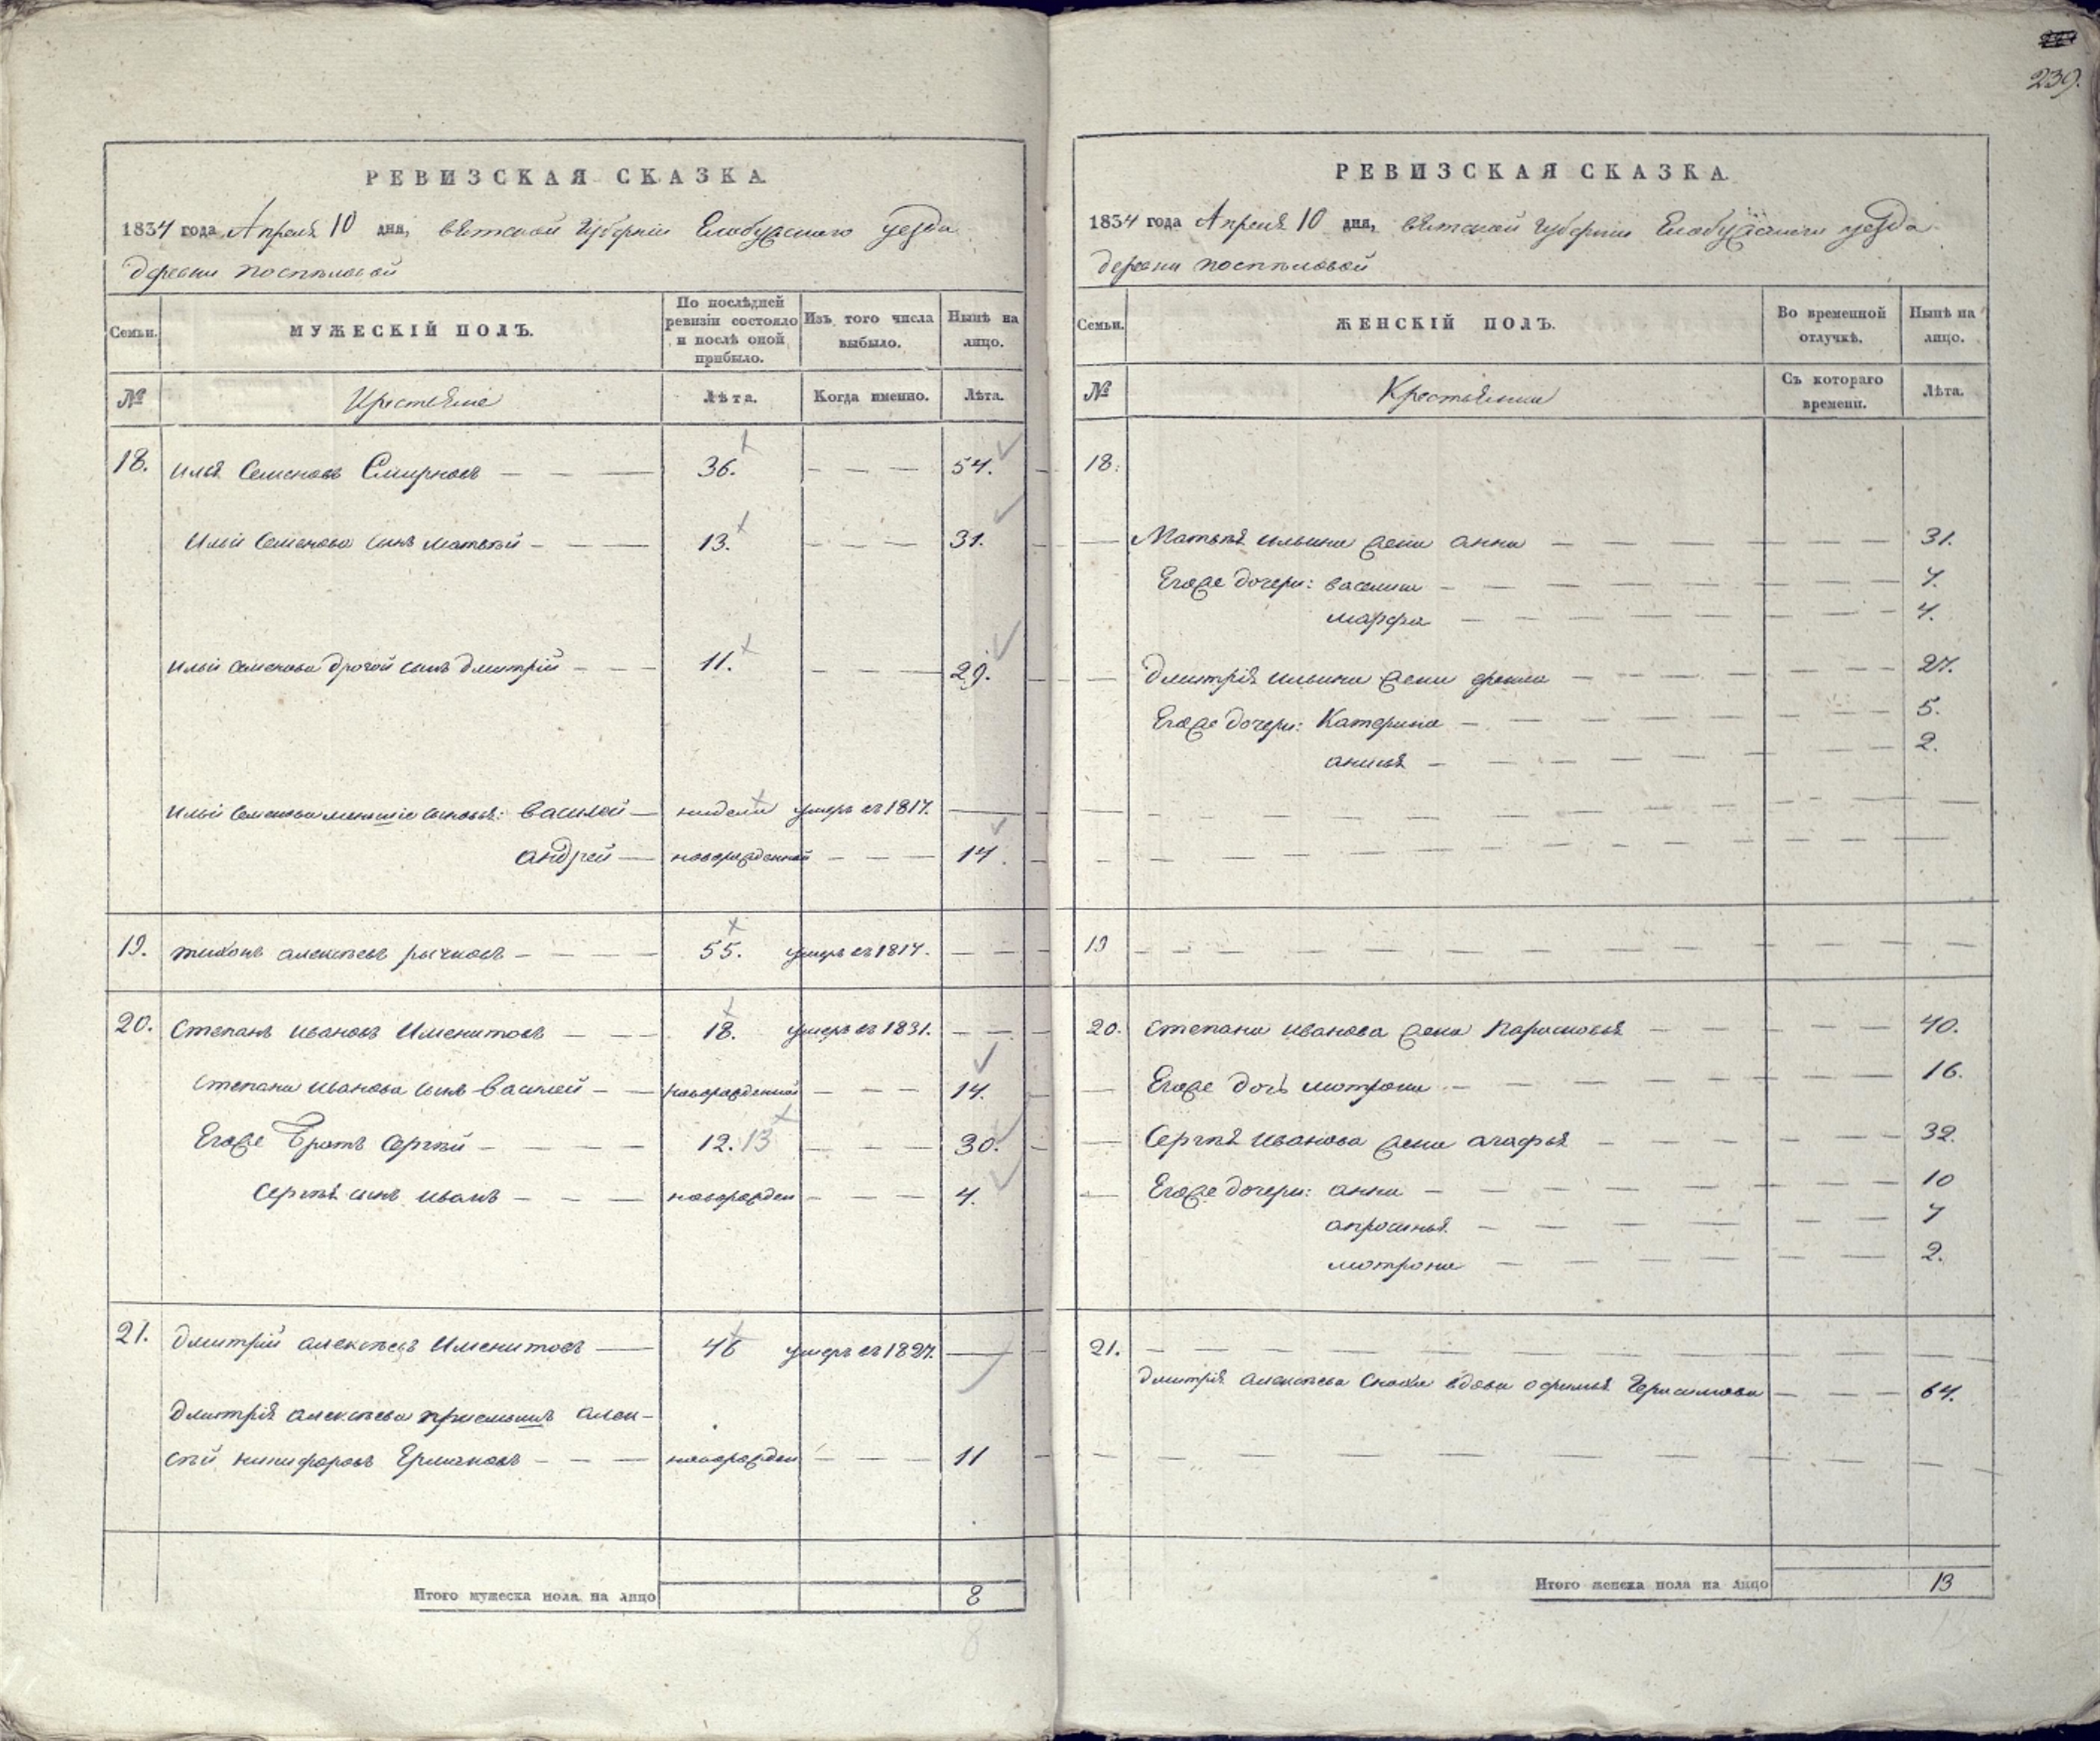 239.
РЕВИЗСКАЯ СКАЗКА.
1834 года Апреля 10 дня, вятской губернии Елабужского уезда
деревни поспѣловой
Семьи.
МУЖЕСКІЙ ПОЛЪ.
По послѣдней ревизіи состояло и послѣ оной прибыло.
Изъ того числа выбыло.
Нынѣ на лицо.
№
Крестьяне
Лѣта.
Когда именно.
Лѣта.
18. илья Семеновъ Смирновъ — — — 36. — — — 54.
Ильи Семенова сынъ матвѣй — — — 13. — — — 31.
ильи семенова другой сынъ дмитрій — — — 11. — — — 29.
ильи семенова меньшіе сыновья: василей — недели умеръ въ 1817. —
андрей — новорожденной — — — 14.
19. тихонъ алексѣевъ рычковъ — — — — 55. умеръ въ 1817. — — —
20. Степанъ ивановъ Именитовъ — — — 18. умеръ въ 1831. — — —
степана иванова сынъ василей — — новорожденной — — — 14.
Егоже братъ Сергѣй — — — — 12. 13 — — — 30.
Сергѣя сынъ иванъ — — — новорожден — — — 4.
21. дмитрій алексѣевъ Именитовъ — 46 умеръ въ 1827. —
дмитрія алексѣева приемышъ алек-
сѣй никифоровъ Ермаковъ — — — новорожден — — — 11
Итого мужеска пола на лицо 8
8
РЕВИЗСКАЯ СКАЗКА.
1834 года Апреля 10 дня, вятской губернии Елабужского уезда
деревни поспѣловой
Семьи.
ЖЕНСКІЙ ПОЛЪ.
Во временной отлучкѣ.
Нынѣ на лицо.
№
Крестьянки
Съ котораго времени.
Лѣта.
18.
— Матвѣя ильина жена анна — — — — — 31.
Егоже дочери: василиса — — — — — 7.
марфа — — — — — 4.
— дмитрія ильина жена — — — — 27.
Егоже дочери: Катерина — — — — — 5.
анисья — — — — — 2.
19 — — — — —
20. степана иванова жена Парасковья — — — — — 40.
— Егоже дочь мотрона — — — — — 16.
— Сергѣя иванова жена агафья — — — — — 32.
— Егоже дочери: анна — — — — — 10
апросинья — — — — — 7
мотрона — — — — — 2.
21. — — — — —
дмитрія алексѣева сноха вдова офимья Герасимова — — — 64.
Итого женска пола на лицо 13